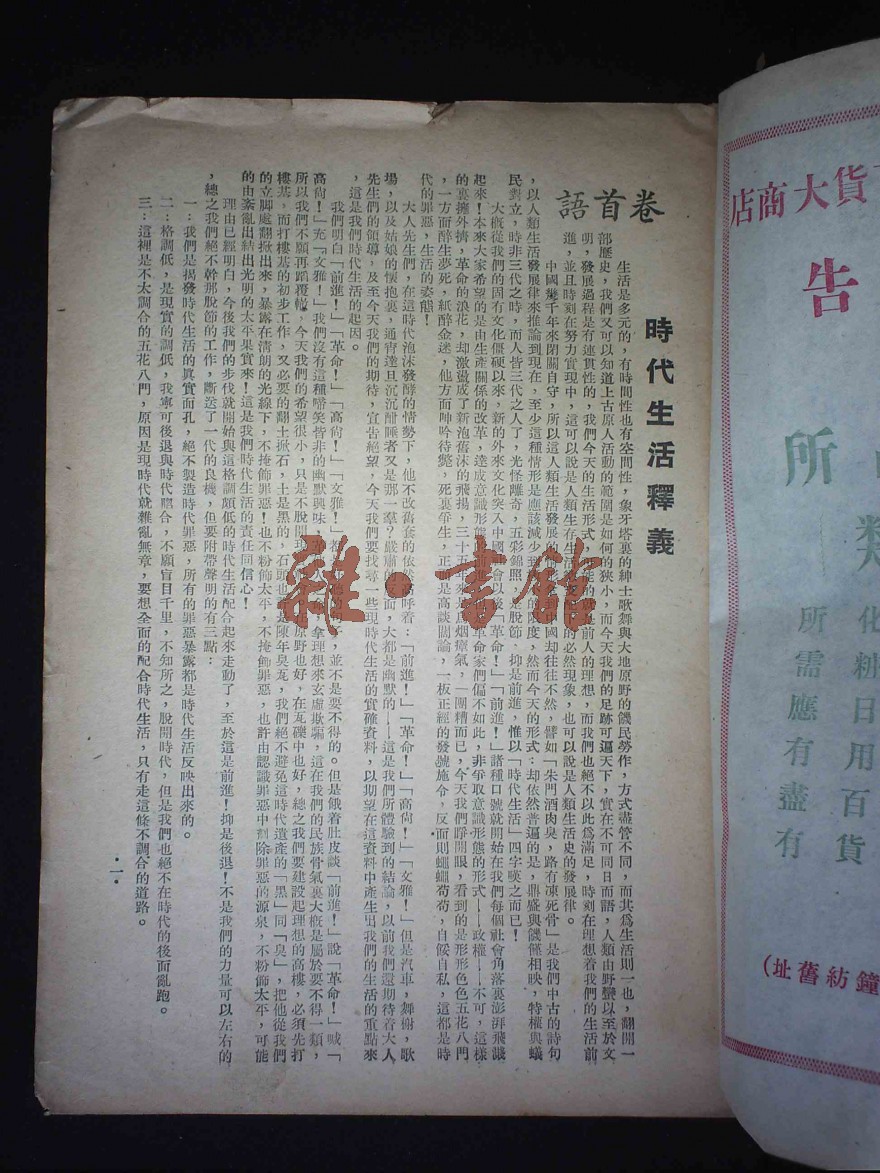 卷首語
時代生活釋義
生活是多元的，有時間性也有空間性，象牙塔裏的紳士歌舞與大地原野的饑民勞作，方式儘管不同，而其爲生活則一也，翻開一
部歷史，我們又可以知道上古原人活動的範圍是如何的狹小，而今天我們的足跡可遍天下，實在不可同日而語，人類由野蠻以至於文
明，發展過程是有連貫性的，我們今天的生活形式，可能的就是前人的理想，而我們也絕不以此爲滿足，時刻在理想着我們的生活前
進，並且時刻在努力實現中，這可以說是人類生存生活的必然現象，也可以說是人類生活史的發展律。
中國幾千年來閉關自守，所以這人類生活發展的中國却往往不然，譬如「朱門酒肉臭，路有凍死骨」是我們中古的詩句
，以人類生活發展律來推論到現在，至少這種情形是應該減少到限度，然而今天的形式：却依然普遍的是，鼎盛與饑饉相映，特權與蟻
民對立，時非三代之時，而人皆三代之人了，光怪離奇，五彩錦照，是脫節，抑是前進，惟以「時代生活」四字嘆之而已！
大概從我們的固有文化僵硬以來，新的外來文化突入中國社會以後「革命！」「前進！」諸種口號就開始在我們每個社會角落裏澎湃飛濺
起來！本來大家希望的是由生產關係的改革，達成意識形態的前進，革命家們偏不如此，非爭取意識形態的形式——政權——不可，這樣
的裏擁外擠，革命的浪花，却激盪成了新泡舊沫的飛揚，三十年來是烏烟瘴氣，一團糟而已，今天我們睜開眼，看到的是形形色色五花八門
，一方面醉生夢死，紙醉金迷，他方面呻吟待斃，死裏争生，正面是高談闊論，一板正經的發號施令，反面則蠅蠅苟苟，自侫自私，這都是時
代的罪惡，生活的姿態！
大人先生們，在這時代泡沫發酵的情勢下，他不改舊套的依然高呼着：「前進！」「革命！」「高尚！」「文雅！」但是汽車，舞榭，歌
場，以及姑娘的懷抱裏，通宵達旦沉沉酣睡者又是那一羣？嚴肅的反面，大都是幽默的——這是我們所體驗到的結論，以前我們還期待着大人
先生們的領導，及至今天我們的期待，宜告絕望，今天我們要找尋一些現時代生活的實確資料，以期望在這資料中產生出我們的生活的重點來
，這是我們時代生活的起因。
我們明白「前進！」「革命！」「高尚！」「文雅！」都是，並不是要不得的。但是餓着肚皮談「前進！」說「革命！」喊「
高尚！」充「文雅！」我們沒有這種啼笑皆非的幽默興味，拿理想來玄虛欺騙，這在我們的民族骨氣裏大槪是屬於要不得一類，
所以我們不願再蹈覆轍，今天我們的希望很小，只是不脫開現，原野也好，在瓦礫中也好，總之我們要建設起理想的高樓，必須先打
樓基，而打樓基的初步工作，又必要的翻土掀石，土是黑的，石頭也是陳年臭瓦，我們絕不避免這時代遺產的「黑」同「臭」，把他從我們
的立脚處翻掀出來，暴露在清朗的光線下，不掩飾罪惡！也不粉飾太平，不掩飾罪惡，也許由認識罪惡中剷除罪惡的源泉，不粉飾太平，可能
的由紊亂出結出光明的太平果實來！這是我們時代生活的責任同信心！
理由已經明白，今後我們的步伐就開始與這格調頗低的時代生活配合起來走動了，至於這是前進！抑是後退！不是我們的力量可以左右的
，總之我們絕不幹那脫節的工作，斷送了一代的良機，但要附帶聲明的有三點：
一：我們是揭發時代生活的眞實面孔，絕不製造時代罪惡，所有的罪惡暴露都是時代生活反映出來的。
二：格調低，是現實的調低，我寧可後退與時代陪合，不願盲目千里，不知所之，脫開時代，但是我們也絕不在時代的後面亂跑。
三：這裡是不太調合的五花八門，原因是現時代就雜亂無章，要想全面的配合時代生活，只有走這條不調合的道路。
·一·
雜·書館
貨大商店
告
所
類
化粧日用百貨
所需應有盡有
鐘紡舊址）